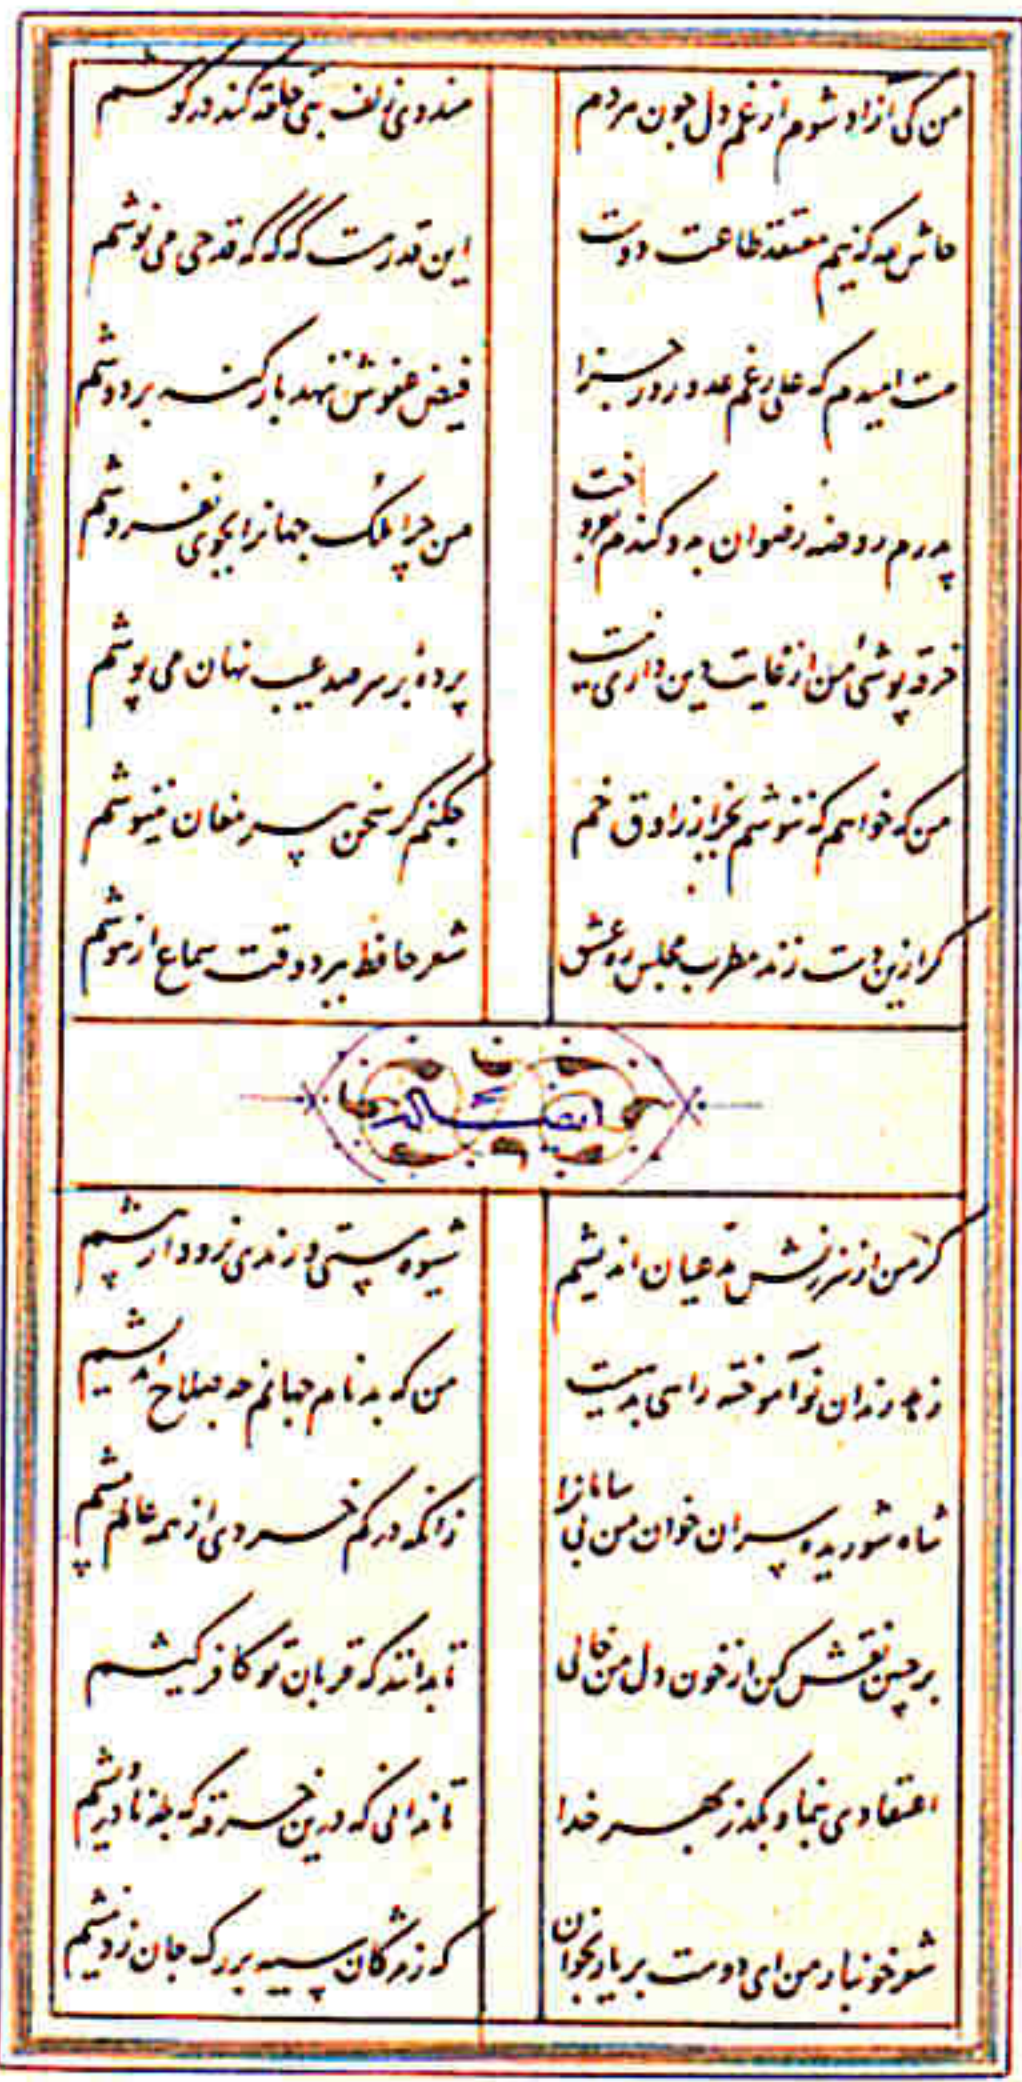 من کی آزاد شوم از غم دل چون هر دم
هندوی زلف بتی حلقه کند در گوشم
حاش لله که نیم معتقد طاعت دوست
این قدر هست که گه گه قدحی می نوشم
هست امیدم که علی رغم عدو روز جزا
فیض عفوش ننهد بار گنه بر دوشم
پدرم روضه رضوان به دو گندم بفروخت
من چرا ملک جهانرا بجوی نفروشم
خرقه پوشی من از غایت دین داری نیست
پرده بر سر صد عیب نهان می پوشم
من که خواهم که ننوشم بجز از راوق خم
چکنم گر سخن پیر مغان ننیوشم
گر ازین دست زند مطرب مجلس ره عشق
شعر حافظ ببرد وقت سماع از هوشم
ایضا له
گر من از سرزنش مدعیان اندیشم
شیوه مستی و رندی نرود از پیشم
زهد رندان نوآموخته راهی بدهیست
من که بدنام جهانم چه صلاح اندیشم
شاه شوریده سران خوان من بی سامانرا
زانکه در کم خردی از همه عالم پیشم
بر جبین نقش کن از خون دل من خالی
تا بدانند که قربان تو کافر کیشم
اعتقادی بنما و بگذر بهر خدا
تا ندانی که درین خرقه که چه نادرویشم
شعر خونبار من ای دوست بر یار بخوان
که ز مژگان سیه بر رگ جان زد نیشم